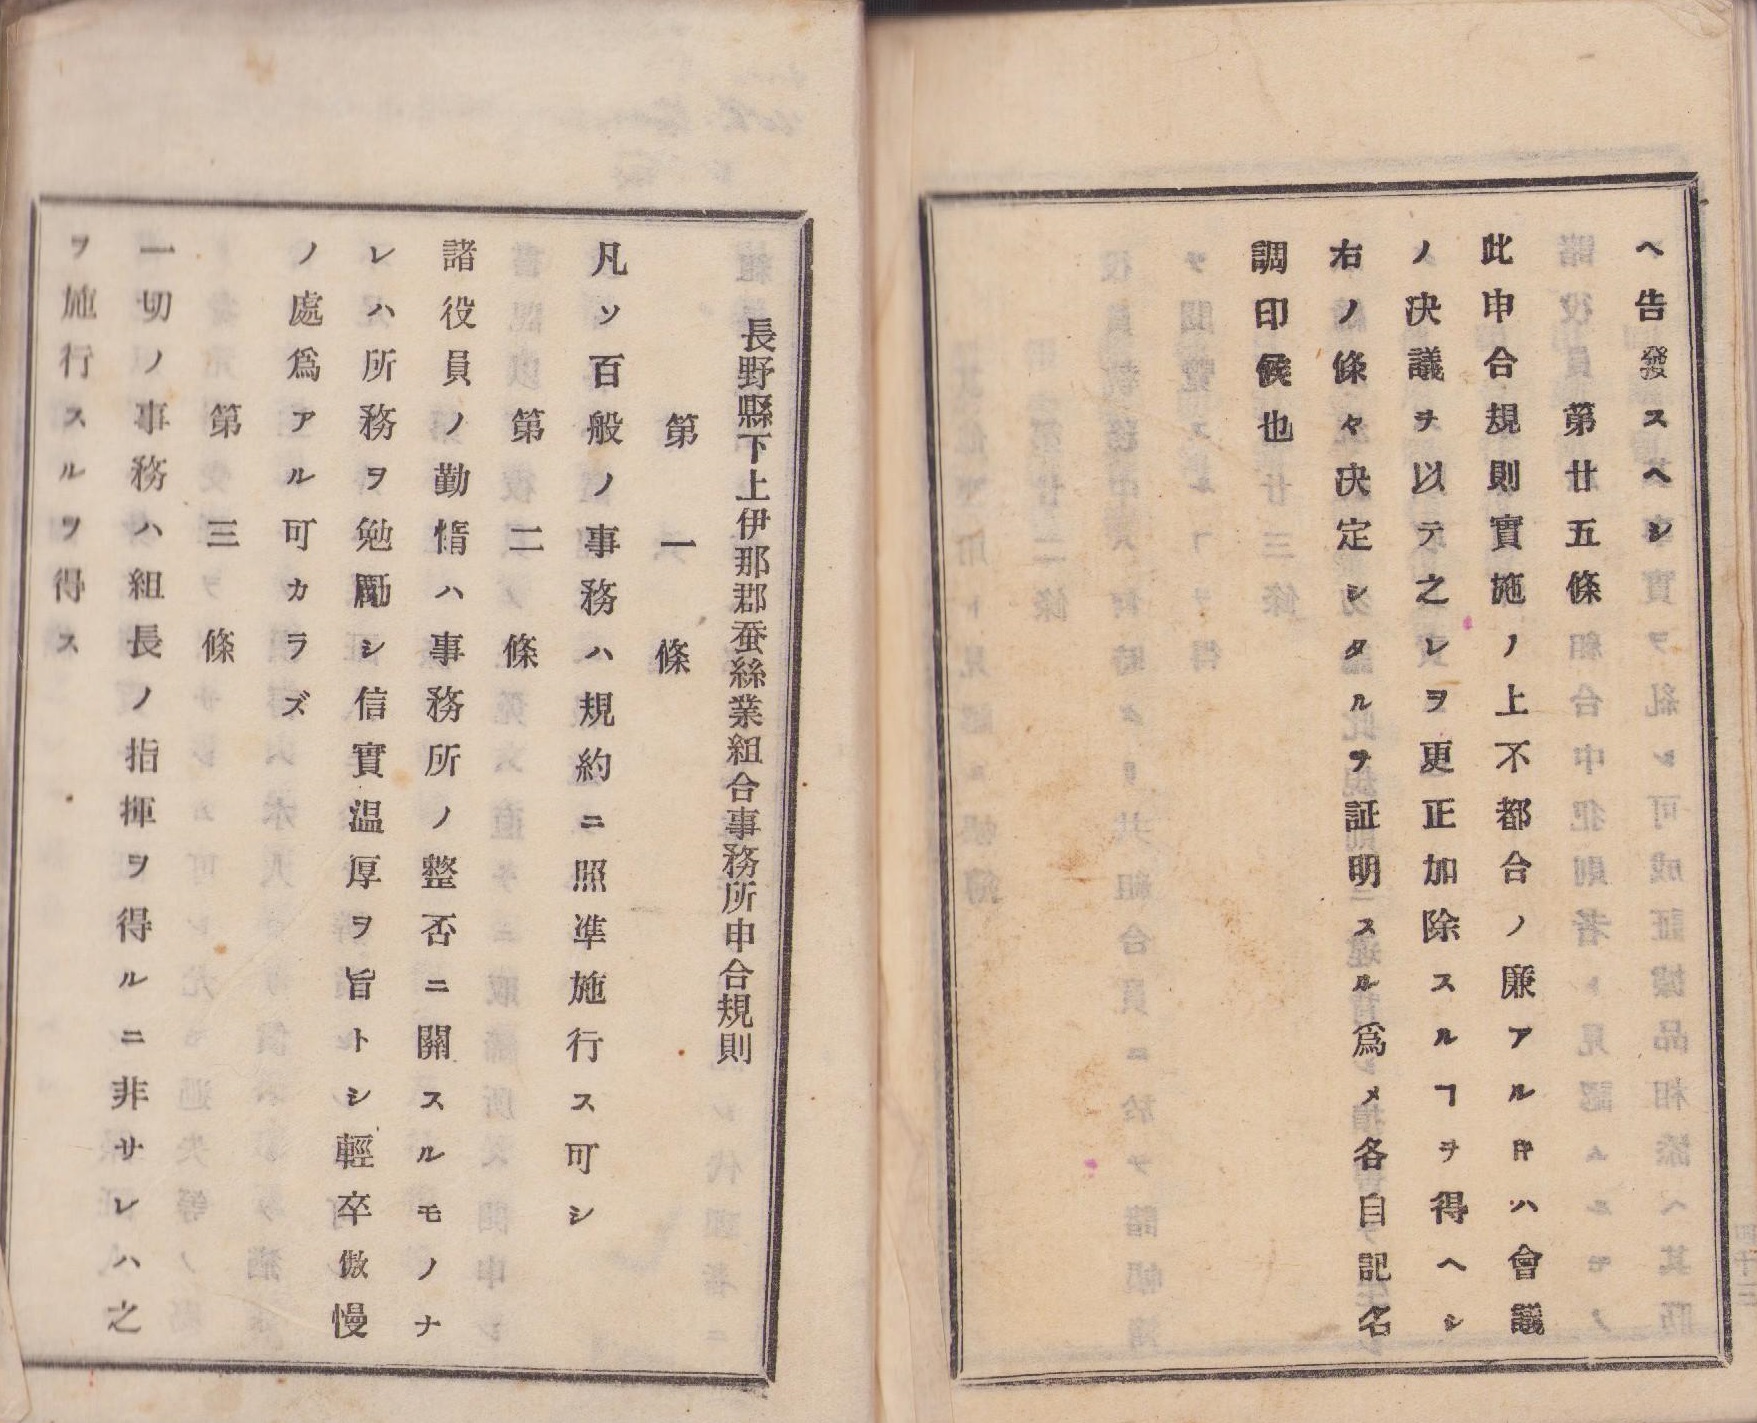 ヘ告發スヘシ
第廿五條
此申合規則實施ノ上不都合ノ廉アルキハ會議
ノ決議ヲ以テ之レヲ更正加除スルヿヲ得ヘシ
右ノ條々决定シタルヲ証明スル爲メ各自記名
調印候也
長野縣下上伊那郡蚕絲業組合事務所申合規則
第一條
凡ソ百般ノ事務ハ規約ニ照準施行ス可シ
第二條
諸役員ノ勤惰ハ事務所ノ整否ニ關スルモノナ
レハ所務ヲ勉勵シ信實温厚ヲ旨トシ輕卒傲慢
ノ處爲アル可カラズ
第三條
一切ノ事務ハ組長ノ指揮ヲ得ルニ非サレハ之
ヲ施行スルヲ得ス